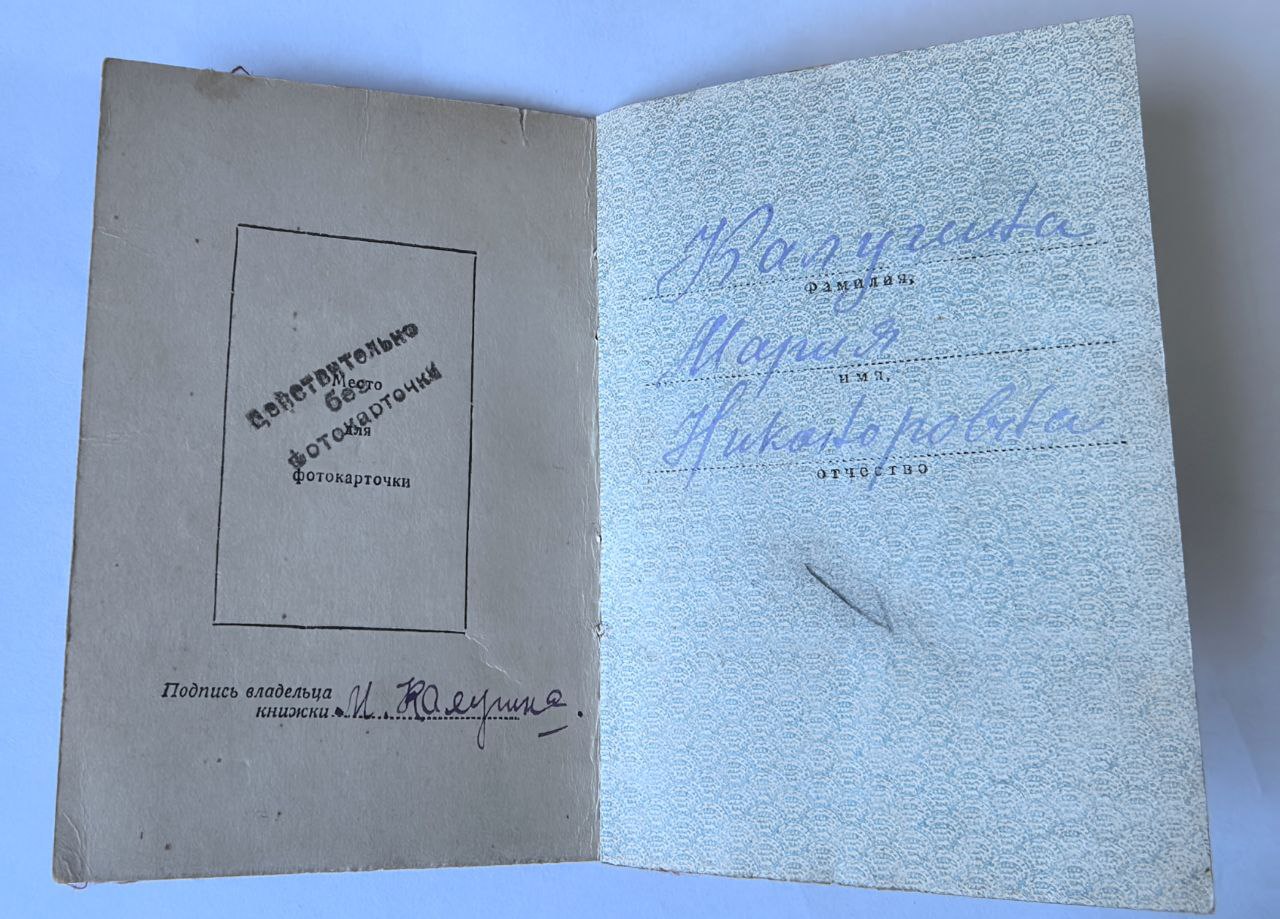 Действительно
без
фотокарточки
Место
для
фотокарточки
Подпись владельца
книжки М. Калугина.
Калугина
фамилия,
Мария
имя,
Никаноровна
отчество